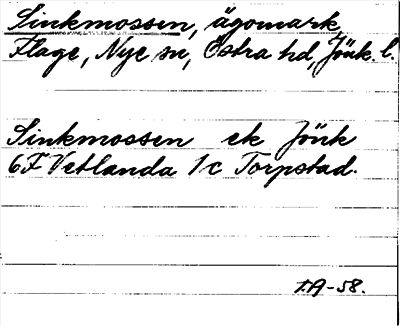 Sinkmossen, ägomark,
Flage, Nye sn, Östra hd, Jönk. l.
Sinkmossen ek Jönk
6F Vetlanda 1c Torpstad.
I.A-58.